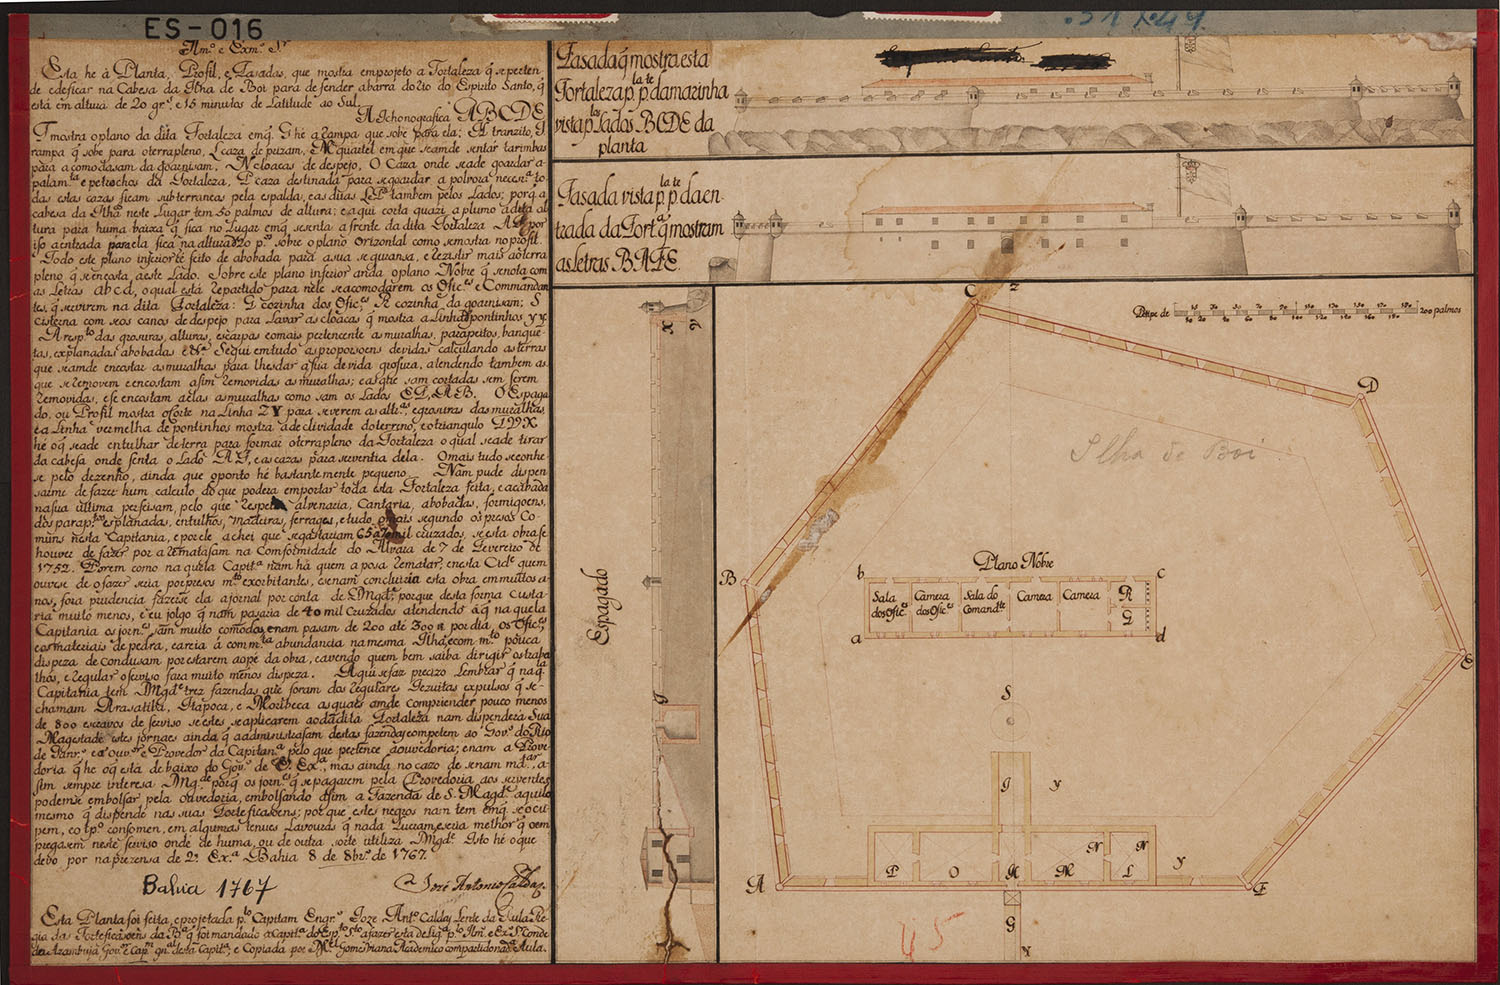 ES-016
Illmº. e Exmº. Sr.
Esta he à Planta, Profil, e Fasadas, que mostra emprojeto a Fortaleza q̃ seperten
de edeficar na Cabesa da Ilha de Boi para defender abarra do Rio do Espirito Santo, q̃
está em altura de 20 grs. e 16 minutos de Latitude ao Sul.
A Ichonografica ABCDE
F mostra oplano da dita Fortaleza emq̃. G he a rampa que sobe para ela; H tranzito, I
rampa q̃ sobe para oterrapleno, L caza de
para acomodasam da goarnisam, N cloacas de despejo, O Caza onde seade goardar a
palamta. e petrechos da Fortaleza, P caza destinada para segoardar a polvora necesra. to
das estas cazas ficam subterraneas pela espalda, e as duas L e P tambem pelos Lados; porq̃ a
cabesa da Ilha neste Lugar tem 50 palmos de altura; e aqui corta quazi a plumo adita al
tura para huma baixa q̃ fica no Lugar emq̃ senta a frente da dita Fortaleza AF por
iso aentrada para ela fica na altura D 20 ps. sobre oplano Orizontal como semostra noprofil.
Todo este plano inferior he feito de abobada para asua seguransa, e rezistir mais aoterra
pleno q̃ seencosta, aeste Lado. Sobre este plano inferior anda oplano Nobre q̃ senota com
as Letras abcd, oqual está repartido para nele seacomodarem os Ofices. e Comandan
tes, q̃ servirem na dita Fortaleza: G cozinha dos Ofices. R cozinha da goarnisam; S
cisterna com seos canos de despejo para Lavar as cloacas q̃ mostra a Linha de pontinhos y y
A respto. das grosuras, alturas, escarpas e omais pertencente as muralhas, parapeitos, banque
tas, explanadas abobadas
que seamde encostar as muralhas para lhesdar asua devida grosura, atendendo tambem as
que se removem e encostam asim removidas as muralhas; e as q̃ he sam cortadas sem serem
removidas, e se encostam a elas as muralhas como sam os Lados EF, AB. O Espaga
do, ou Profil mostra ocorte na Linha ZY para severem as altras. e grosuras das muralhas,
e a Linha vermelha de pontinhos mostra a declividade do terreno, e otriangulo
he oq̃ seade entulhar de terra para formar oterrapleno da Fortaleza o qual seade tirar
da cabesa onde senta o Lado AF, e as cazas para serventia dela. O mais tudo seconhe
se pelo dezenho, ainda que oponto hé bastantemente pequeno. Nam pude dispen
sarme de fazer hum calculo do que podera emportar toda esta Fortaleza feita, e acabada
na sua ultima perfeisam, pelo que respeita alvenaria, Cantaria, abobadas, formigoens,
dos parapos. esplanadas, entulhos, madeiras, ferrages, etudo omais segundo os presos Co
muns nesta Capitania, e por ele achei que segastariam 65 mil cruzados, se esta obra se
houver de fazer por arematasam na Comformidade do Alvara de 7 de Fevereiro de
1752. Porem como na quela Capita. nam há quem a posa rematar, e nesta Cide. quem
ouvese de o fazer seria por presos mto. exorbitantes, e senam concluiria esta obra em muitos a
nos, fora prudencia fazerse ela ajornal por conta de SMgde. porque desta forma custa
ria muito menos, e eu jolgo q̃ nam pasaria de 40 mil Cruzados atendendo à q̃ na quela
Capitania os jornes. sam muito comodos, enam pasam de 200 até 300 rs por dia, os Ofices,
e os materiais de pedra, e areia á com mta. abundancia na mesma Ilha, e com mta. pouca
dispeza de condusam por estarem aopé da obra, e avendo quem bem saiba dirigir os traba
lhos, e regular oserviso fara muito menos dispeza. Aqui sefaz precizo Lembrar q̃ na qla.
Capitania tem SMgde. trez fazendas que foram dos regulares Jezuitas expulsos q̃ se
chamam Arasatiba, Itapoca, e Moribeca as quais amde compriender pouco menos
de 800 escravos de serviso se estes se aplicarem aoda dita Fortaleza nam dispenderá Sua
Magestade estes jornaes ainda q̃ a administrasam destas fazendas competem ao Govo. do Rio
de Janro. e a Ouvor. e Provedor da Capitana. pelo que pertence aouvedoria; enam a Prove
doria q̃ he oq̃ está debaixo do Govo. de V. Exa., mas ainda no cazo de senam mdar. a
sim sempre interesa SMgde. porq̃ os jornes. q̃ sepagarem pela Provedoria aos serventes
podemse embolsar pela ouvedoria, embolsando asim a Fazenda de S. Magde. aquilo
mesmo q̃ dispende nas suas Forteficasoens; porque estes negros nam tem emq̃ se ocu
pem, e o tpo. consomem, em algumas tenues Lavouras q̃ nada Lucram, e seria melhor q̃ oem
pregasem neste serviso onde de huma, ou de outra sorte utiliza SMgde. Isto hé oque
devo por na prezensa de V. Exa. Bahia 8 de 8bro. de 1767.
Bahia 1767
Jozé Antonio Caldas.
Esta Planta foi feita, e projetada po. Capitam Engro. Joze Anto. Caldas Lente da Aula Re
gia das Forteficasoens da Ba. q̃ foi mandado a Capita. do Espto. Sto. afazer esta deliga. po. Illmo. e Exmo. S. Conde
de Azambuja Govor. e Capm. gnal. desta Capita.; e Copiada por Mel. Gomes Viana Academico compartido na da. Aula.
Fasada q̃ mostra esta
Fortaleza pla. pte. da marinha
vista pelos Lados BCDE da
planta
Fasada vista pla. pte. da en-
trada da Fort.a q̃ mostram
as Letras BAFE.
Espagado
x
y
g
Petipe de 200 palmos
Z
C
D
Ilha de Boi
B
E
Plano Nobre
b c
Sala dos Ofices.
Camera dos Ofices.
Sala do Comandte.
Camera
Camera
R
G
a d
S
I
y
N N
P O H M L
y
A
F
G
Y
45